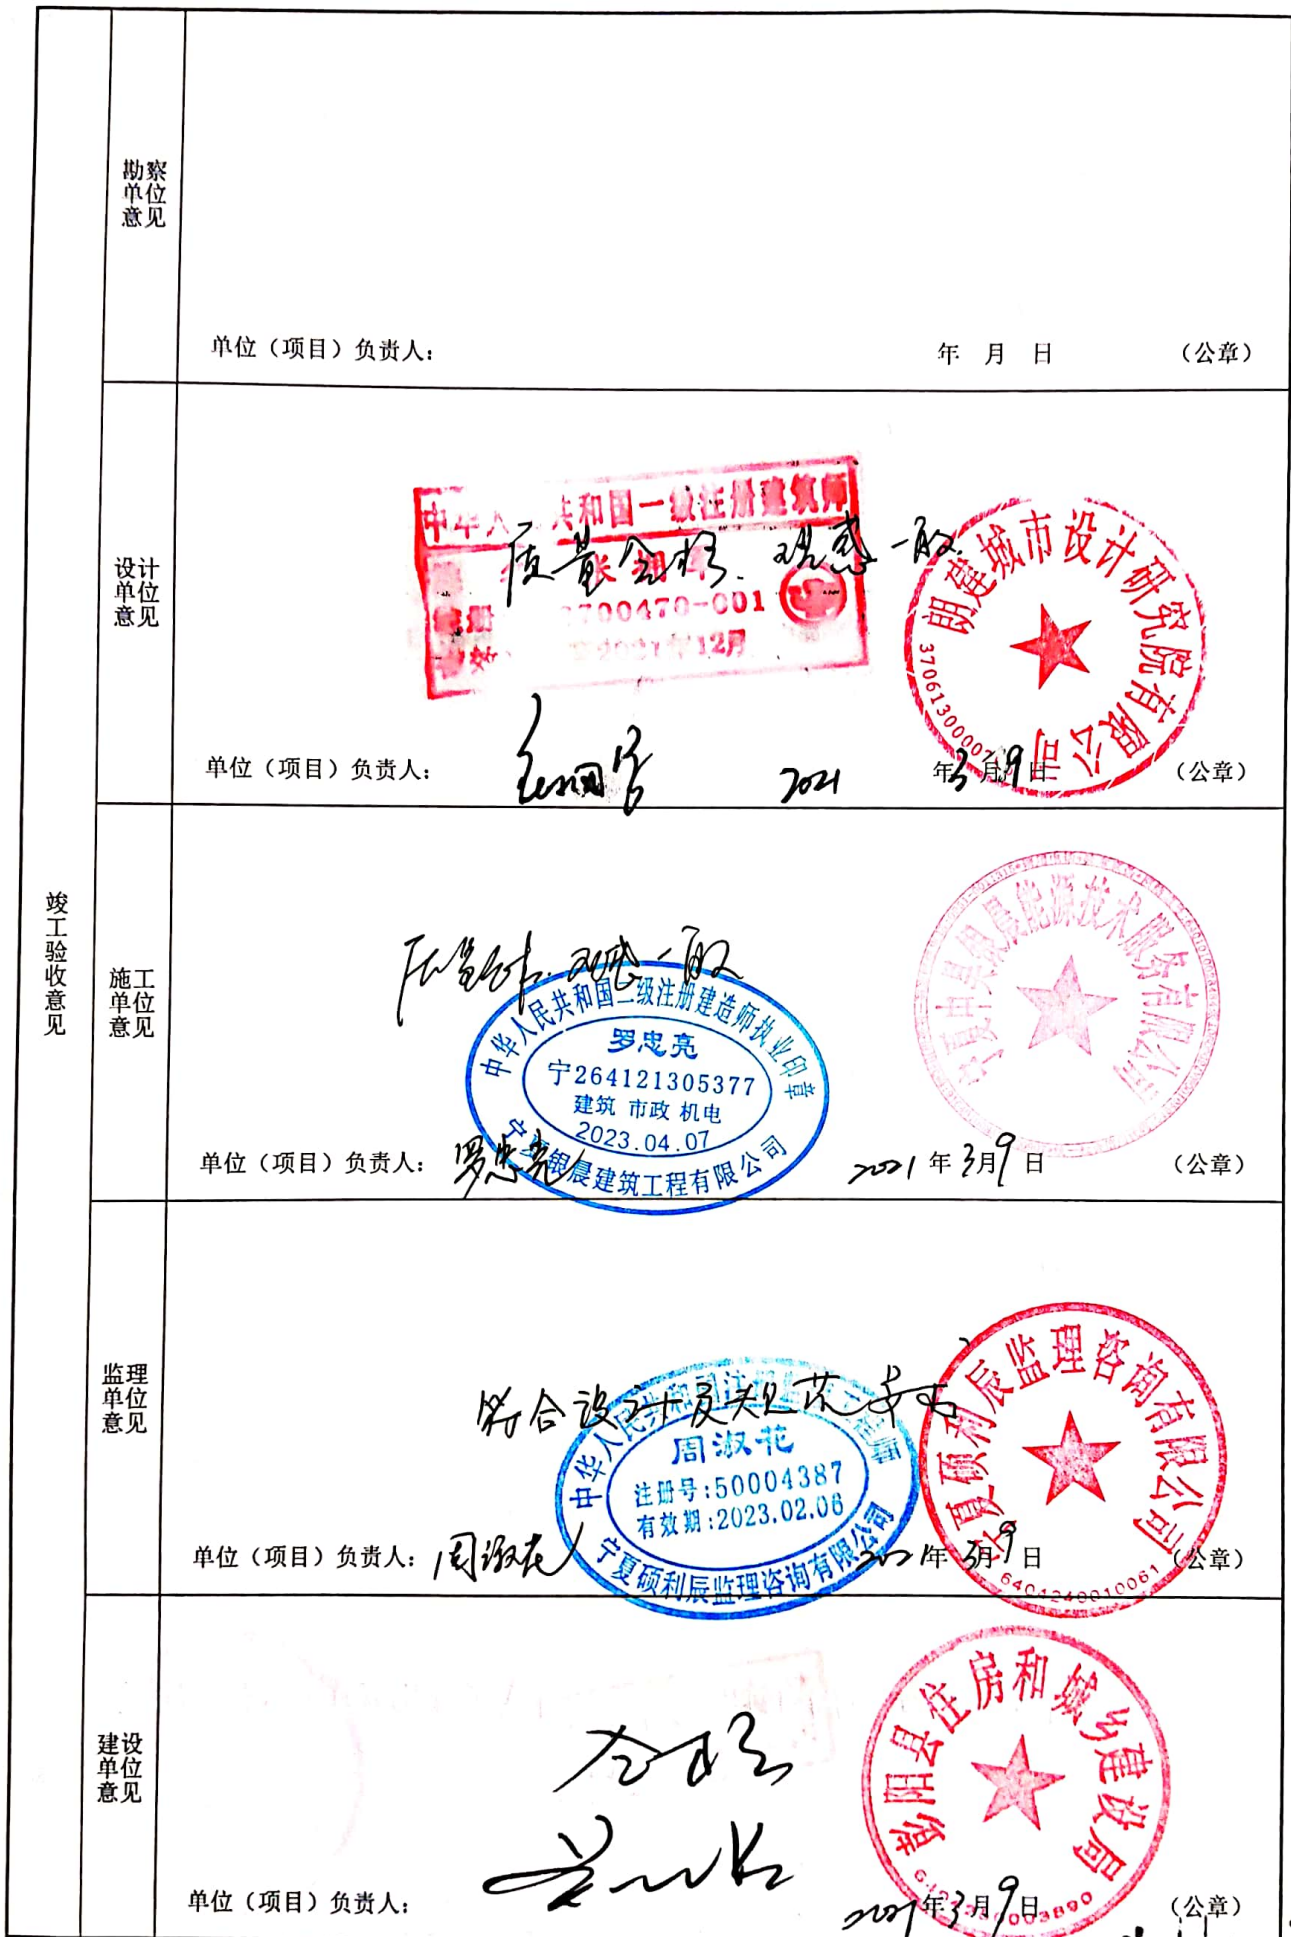 竣工验收意见
勘察单位意见
单位（项目）负责人：
年 月 日 （公章）
设计单位意见
共和国一级注册建筑师
00470-001
12月
质量合格. 观感一般
朗建城市设计研究院有限公司
单位（项目）负责人：
2021年3月9日 （公章）
施工单位意见
质量合格. 观感一般
中华人民共和国二级注册建造师执业印章
罗忠亮
宁264121305377
建筑 市政 机电
2023.04.07
宁夏银晨建筑工程有限公司
能源技术服务有限公司
单位（项目）负责人： 罗忠亮
2021年3月9日 （公章）
监理单位意见
符合设计及规范要求
中华人民共和国注册监理工程师
周淑花
注册号:50004387
有效期:2023.02.06
宁夏硕利辰监理咨询有限公司
宁夏硕利辰监理咨询有限公司
6404240010061
单位（项目）负责人： 周淑花
2021年3月9日 （公章）
建设单位意见
合格
彭阳县住房和城乡建设局
单位（项目）负责人：
2021年3月9日 （公章）